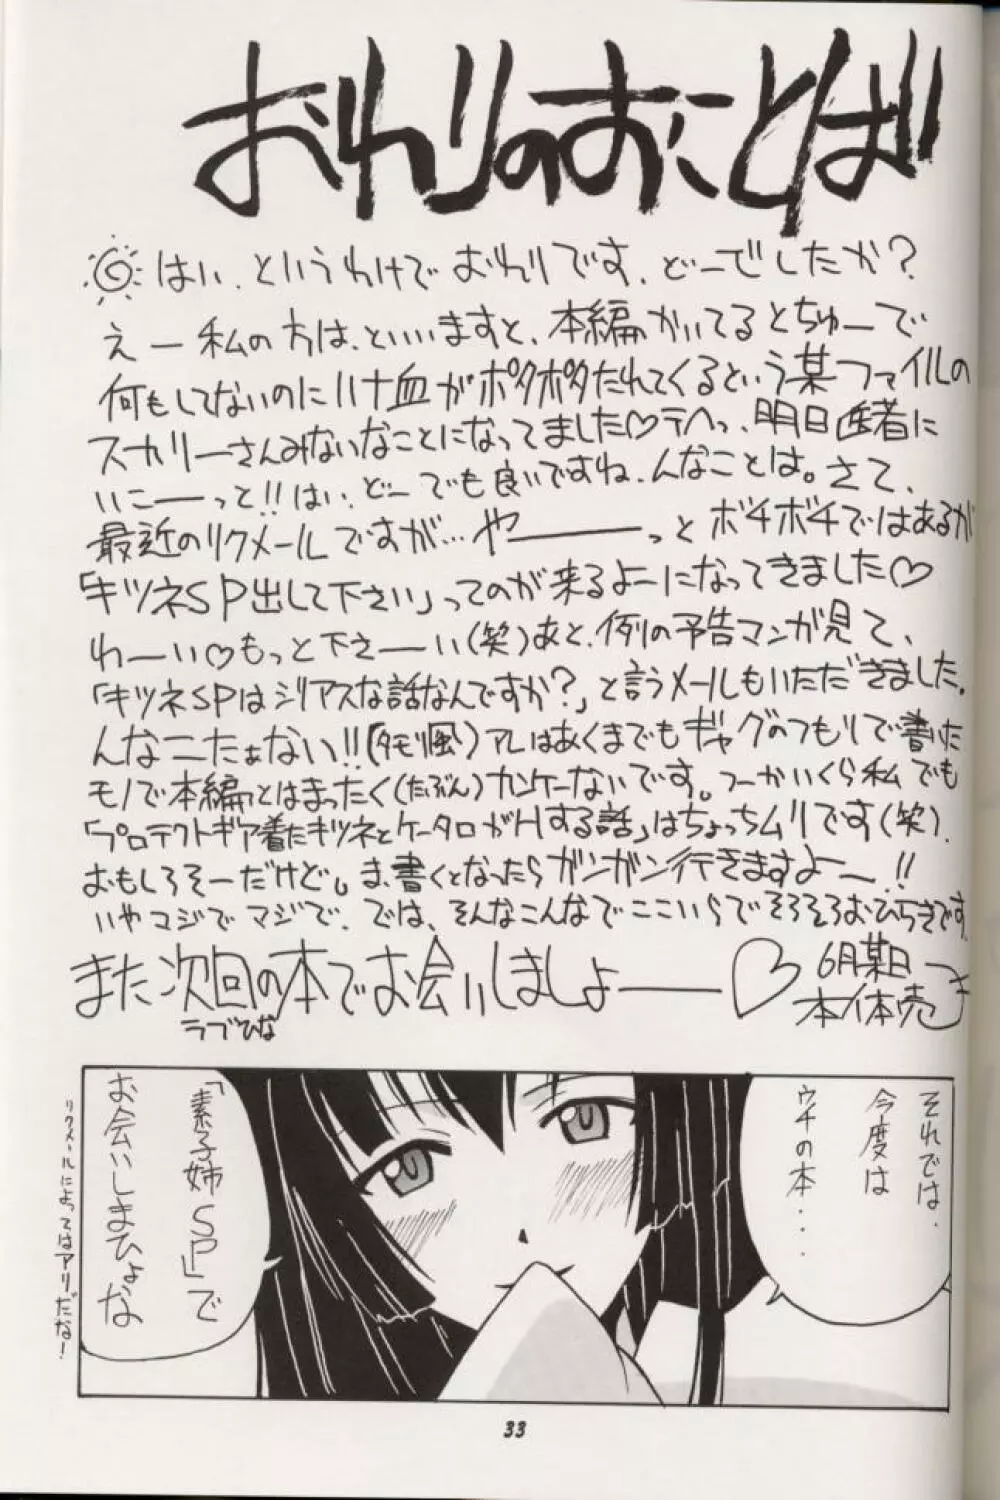 おわりのおことば
はい、というわけでおわりです、どーでしたか?
えー私の方は、といいますと、本編かいてるとちゅーで
何もしてないのにハナ血がポタポタたれてくるという某ファイルの
スカリーさんみないなことになってました♡テヘっ、明日医者に
いこーーっと!!はい、どーでも良いですね、んなことは。さて、
最近のリクメールですが…やーーーっとボチボチではあるが
「キツネSP出して下さい」ってのが来るよーになってきました♡
わーーい♡もっと下さーーい(笑)あと、例の予告マンガ見て、
「キツネSPはシリアスな話なんですか?」と言うメールもいただきました。
んなこたぁない!!(タモリ風)アレはあくまでもギャグのつもりで書いた
モノで本編とはまったく(たぶん)カンケーないです。つーかいくら私でも
「プロテクトギア着たキツネとケータロがHする話」はちょっちムリです(笑)、
おもしろそーだけど。ま、書くとなったらガンガン行きますよー!!
いやマジでマジで、では、そんなこんなでここいらでそろそろおひらきです。
また次回の本でお会いしましょーーー♡
ラブひな
6月某日
本体売
それでは、
今度は
ウチの本...
「素子姉SP」で
お会いしまひょな
リクメールによってはアリだな!
33